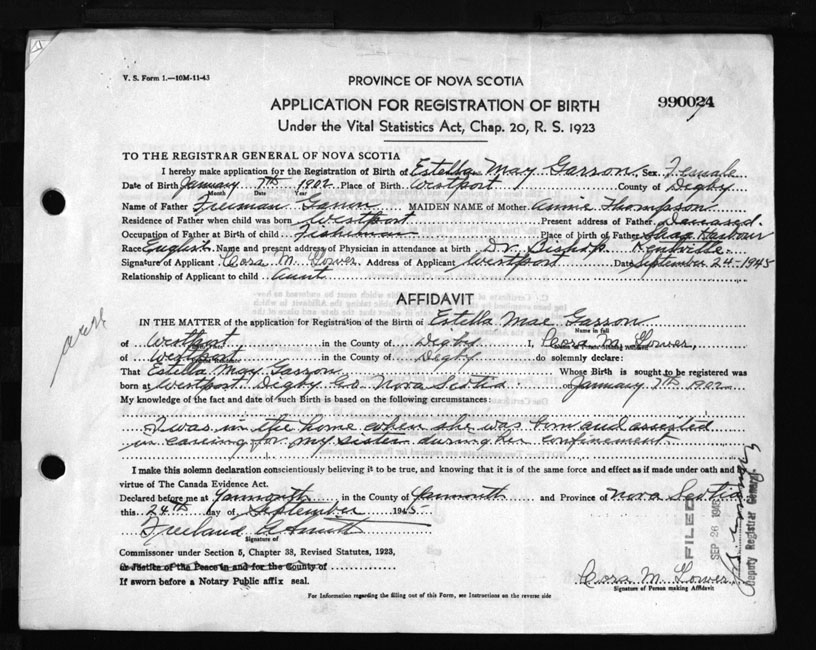 V. S. Form 1.—10M-11-43
PROVINCE OF NOVA SCOTIA
APPLICATION FOR REGISTRATION OF BIRTH
990024
Under the Vital Statistics Act, Chap. 20, R. S. 1923
TO THE REGISTRAR GENERAL OF NOVA SCOTIA
I hereby make application for the Registration of Birth of Estella May Garson Sex Female
Date of Birth January 7th 1902 Place of Birth Westport County of Digby
Month Date Year
Name of Father Freeman Garson MAIDEN NAME of Mother Annie Thompson
Residence of Father when child was born Westport Present address of Father Deceased
Occupation of Father at Birth of child Fisherman Place of birth of Father Shag Harbour
Race English Name and present address of Physician in attendance at birth Dr. Bishop Kentville
Signature of Applicant Cora M. Gower Address of Applicant Westport Date September 24-1945
Relationship of Applicant to child Aunt
AFFIDAVIT
IN THE MATTER of the application for Registration of the Birth of Estella Mae Garson
Name in full
of Westport in the County of Digby I, Cora M. Gower,
of Westport in the County of Digby do solemnly declare:
That Estella May Garson Whose Birth is sought to be registered was
born at Westport Digby Co. Nova Scotia on January 7th 1902
My knowledge of the fact and date of such Birth is based on the following circumstances:
I was in the home when she was born and assisted
in careing for my sister during her confinement
I make this solemn declaration conscientiously believing it to be true, and knowing that it is of the same force and effect as if made under oath and
virtue of The Canada Evidence Act.
Declared before me at Yarmouth in the County of Yarmouth and Province of Nova Scotia
this 24th day of September 1945
Freeland A Smith
Signature of
Commissioner under Section 5, Chapter 38, Revised Statutes, 1923,
or Justice of the Peace in and for the County of
If sworn before a Notary Public affix seal.
FILED
SEP 26 1945
Deputy Registrar General
Cora M. Gower
Signature of Person making Affidavit
For Information regarding the filling out of this Form, see Instructions on the reverse side